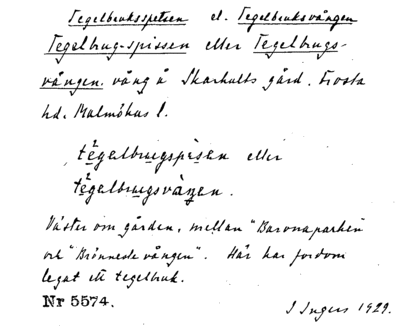 Tegelbruksspetsen el. Tegelbruksvången
Tegelbrug-spissen eller Tegelbrugs-
vången. vång å Skarhults gård. Frosta
hd. Malmöhus l.
tegelbrugspisen eller
tegelbrugsvången.
Väster om gården, mellan "Baronaparken
och "Brönneste vången". Här har fordom
legat ett tegelbruk.
Nr 5574.
I Ingers 1929.